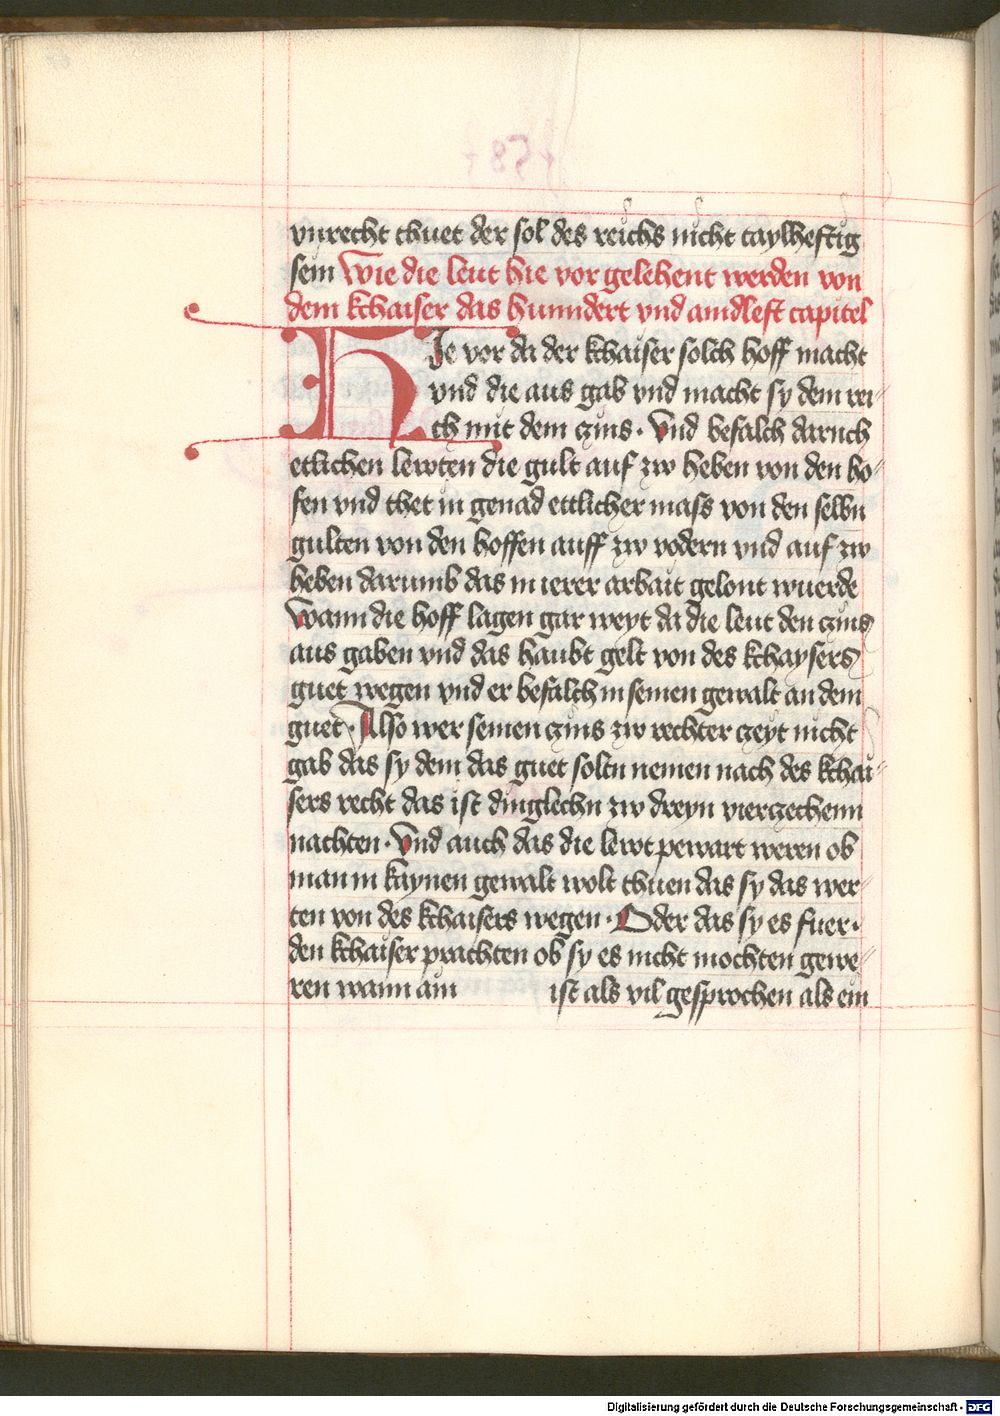 vnrecht thuet der sol des reichs nicht taylheftig
sein Wie die leut hie vor gelehent werden von
dem kchaiser das hunndert vnd aindleft capitel
HIe vor da der kchaiser solch hoff macht
vnd die aus gab vnd macht sy dem rei-
ch mit dem czins. Vnd befalch darnch
etlichen lewten die gult auf zw heben von den ho-
fen vnd thet in genad ettlicher mass von den selbn
gulten von den hoffen auff zw vodern vnd auf zw
heben darumb das in ierer arbait gelont wuerde
Wann die hoff lagen gar weyt da die leut den czins
aus gaben vnd das haubt gelt von des kchaysers
guet wegen vnd er befalch in seinen gewalt an dem
guet. Also wer seinen czins zw rechter czeyt nicht
gab das sy dem das guet soltn nemen nach des kchai-
sers recht das ist dinglechn zw dreyn vierczechenn
nachten. Vnd auch das die lewt pewart weren ob
man in kaynen gewalt wolt thuen das sy das wer-
ten von des kchaisers wegen. Oder das sy es fuer.
den kchaiser prachten ob sy es nicht mochten gewe-
ren wann ain ist als vil gesprochen als ein
Digitalisierung gefördert durch die Deutsche Forschungsgemeinschaft - DFG